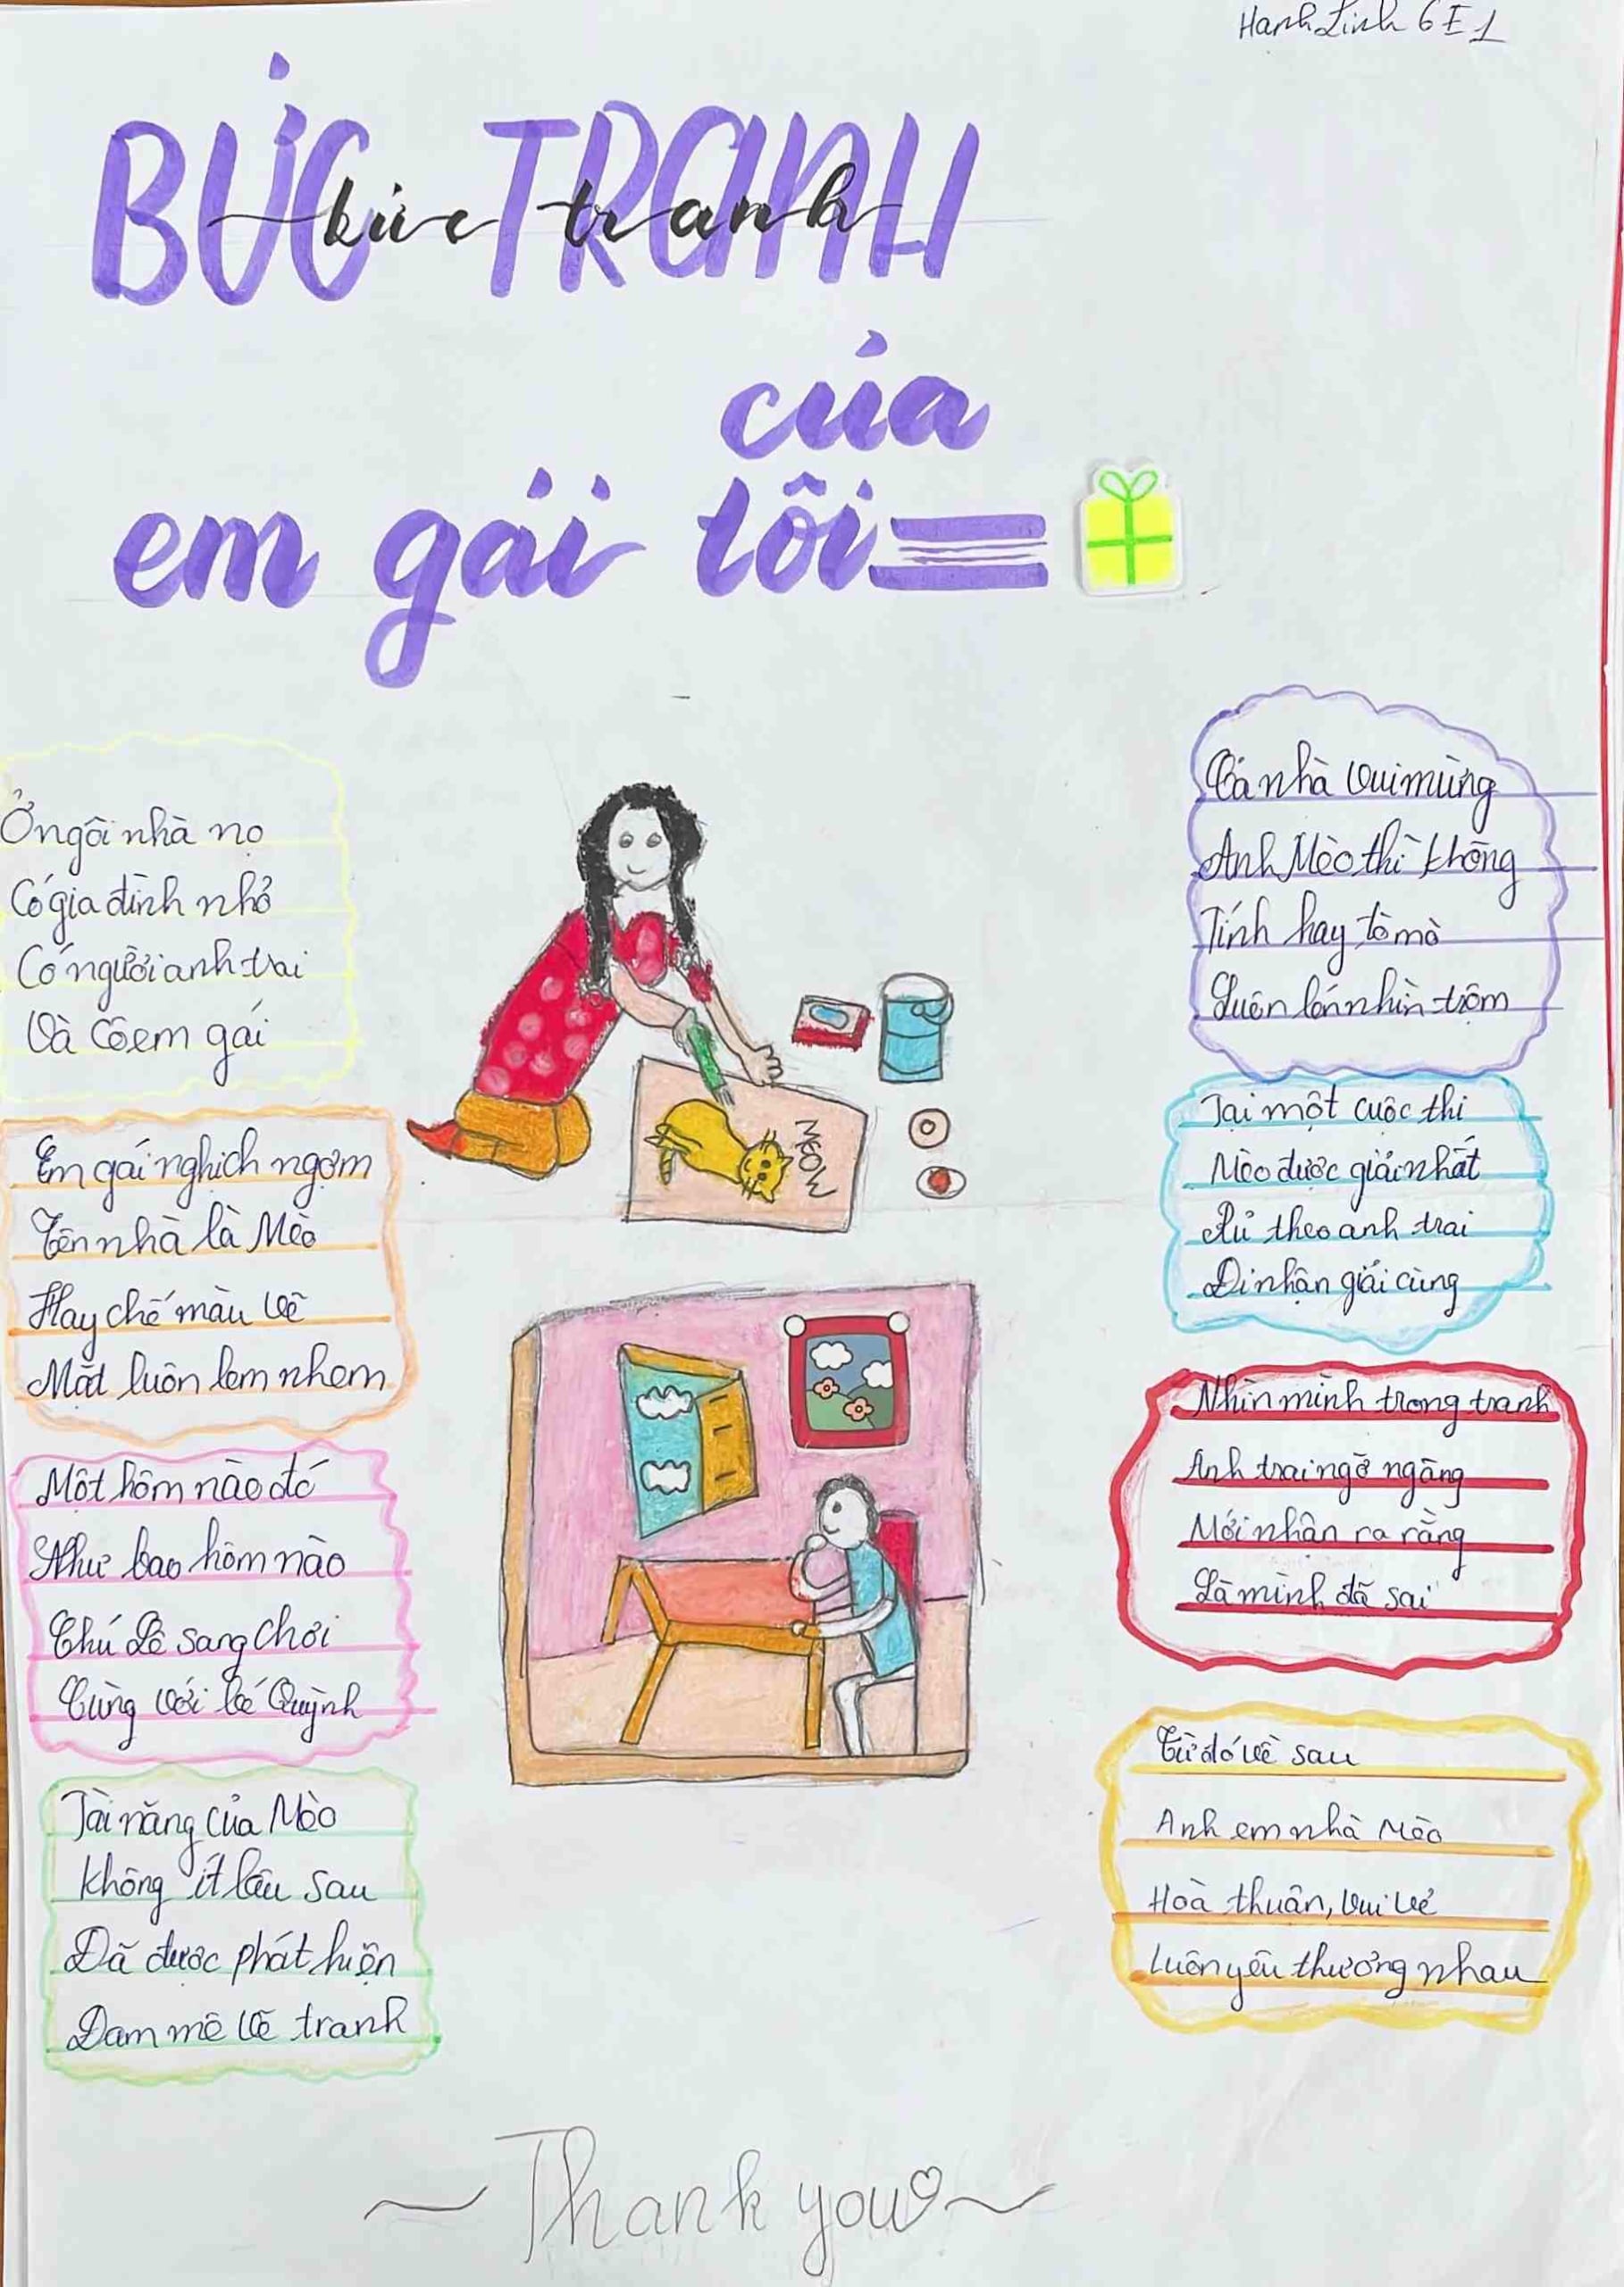 Hạnh Linh 6E1
BỨC TRANH
bức tranh
của
em gái tôi
Ở ngôi nhà nọ
Có gia đình nhỏ
Có người anh trai
Và cô em gái
Em gái nghịch ngợm
Tên nhà là Mèo
Hay chế màu vẽ
Mặt luôn lem nhem
Một hôm nào đó
Như bao hôm nào
Chú Lê sang chơi
Cùng với bé Quỳnh
Tài năng của Mèo
Không ít lâu sau
Đã được phát hiện
Đam mê vẽ tranh
MEOW
Cả nhà vui mừng
Anh Mèo thì không
Tính hay tò mò
Luôn lén nhìn trộm
Tại một cuộc thi
Mèo được giải nhất
Rủ theo anh trai
Đi nhận giải cùng
Nhìn mình trong tranh
Anh trai ngỡ ngàng
Mới nhận ra rằng
Là mình đã sai
Từ đó về sau
Anh em nhà Mèo
Hoà thuận, vui vẻ
Luôn yêu thương nhau
~Thank you♡~